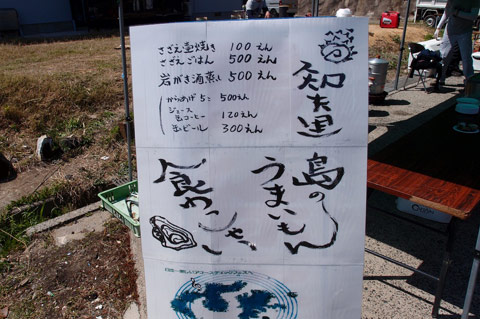 さざえ壷焼き 100えん
さざえごはん 500えん
岩がき酒蒸し 500えん
からあげ5こ 500えん
ジュース
缶コーヒー 120えん
缶ビール 300えん
島の
うまいもん
食わっしゃい